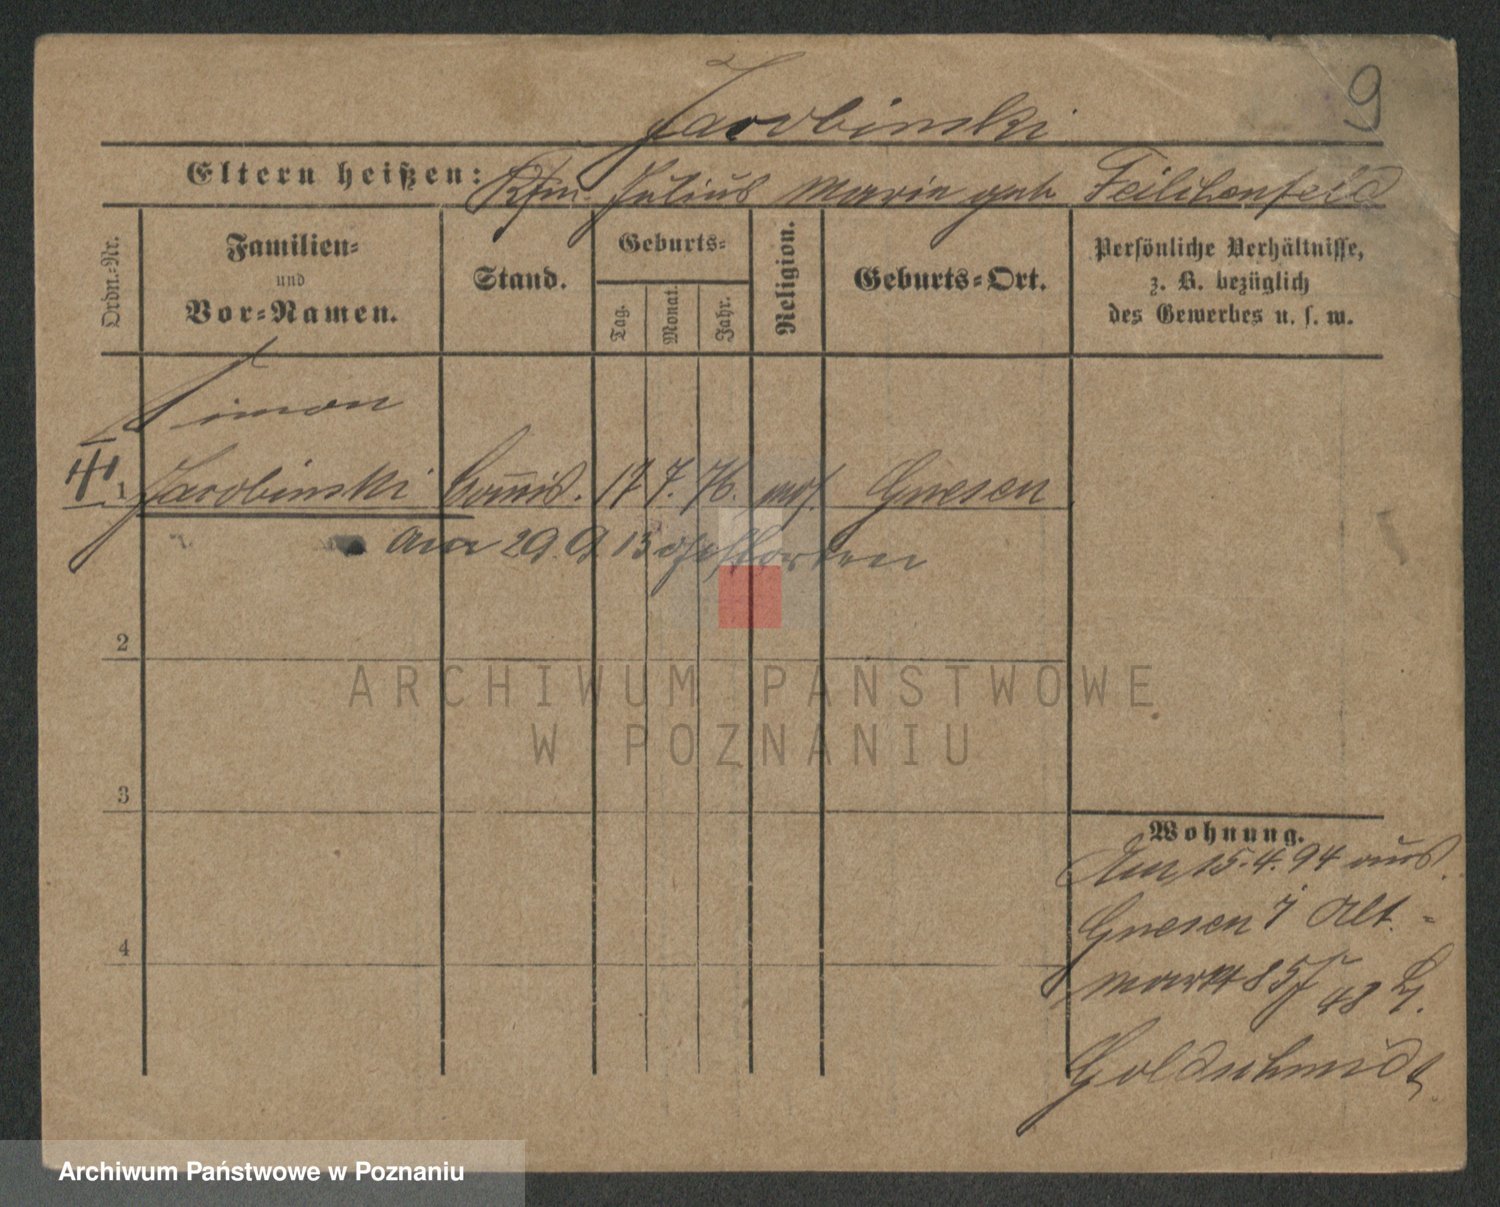 Jacobinski
9
Eltern heißen: Kfm. Julius Marie geb. Feilchenfeld
Ordn.-Nr.
Familien- und Vor-Namen.
Stand.
Geburts-
Tag.
Monat.
Jahr.
Religion.
Geburts-Ort.
Persönliche Verhältnisse,
z. B. bezüglich
des Gewerbes u. s. w.
Simon
1 Jacobinski Commis. 17 7. 76. mos. Gnesen
am 29. 9. 15 gestorben
2
3
4
Wohnung.
Am 15.4.94 aus
Gnesen Alt-
markt 85
Goldschmidt
ARCHIWUM PAŃSTWOWE
W POZNANIU
Archiwum Państwowe w Poznaniu